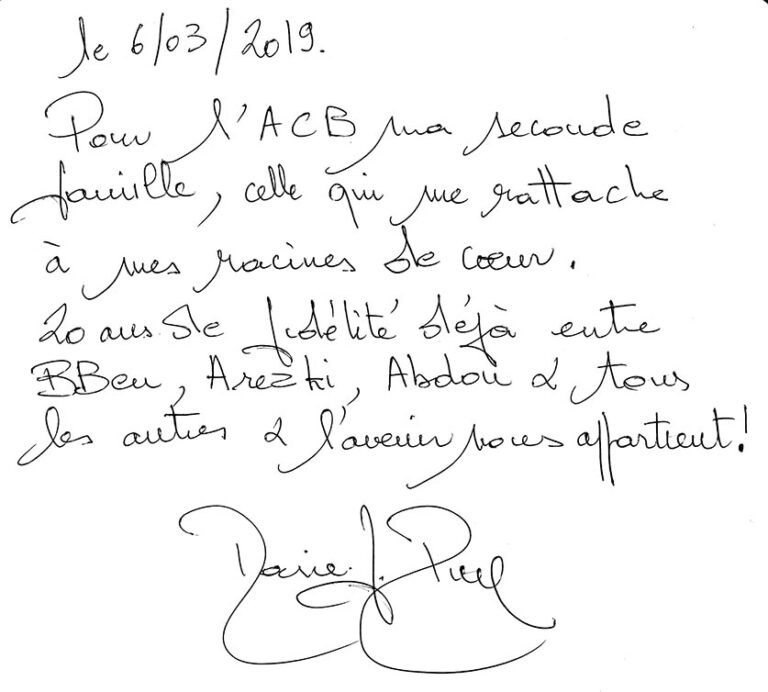 le 6/03/2019.
Pour l'ACB ma seconde
famille, celle qui me rattache
à mes racines de cœur.
20 ans de fidélité déjà entre
BBeu, Arezki, Abdou & tous
les autres & l'avenir nous appartient!